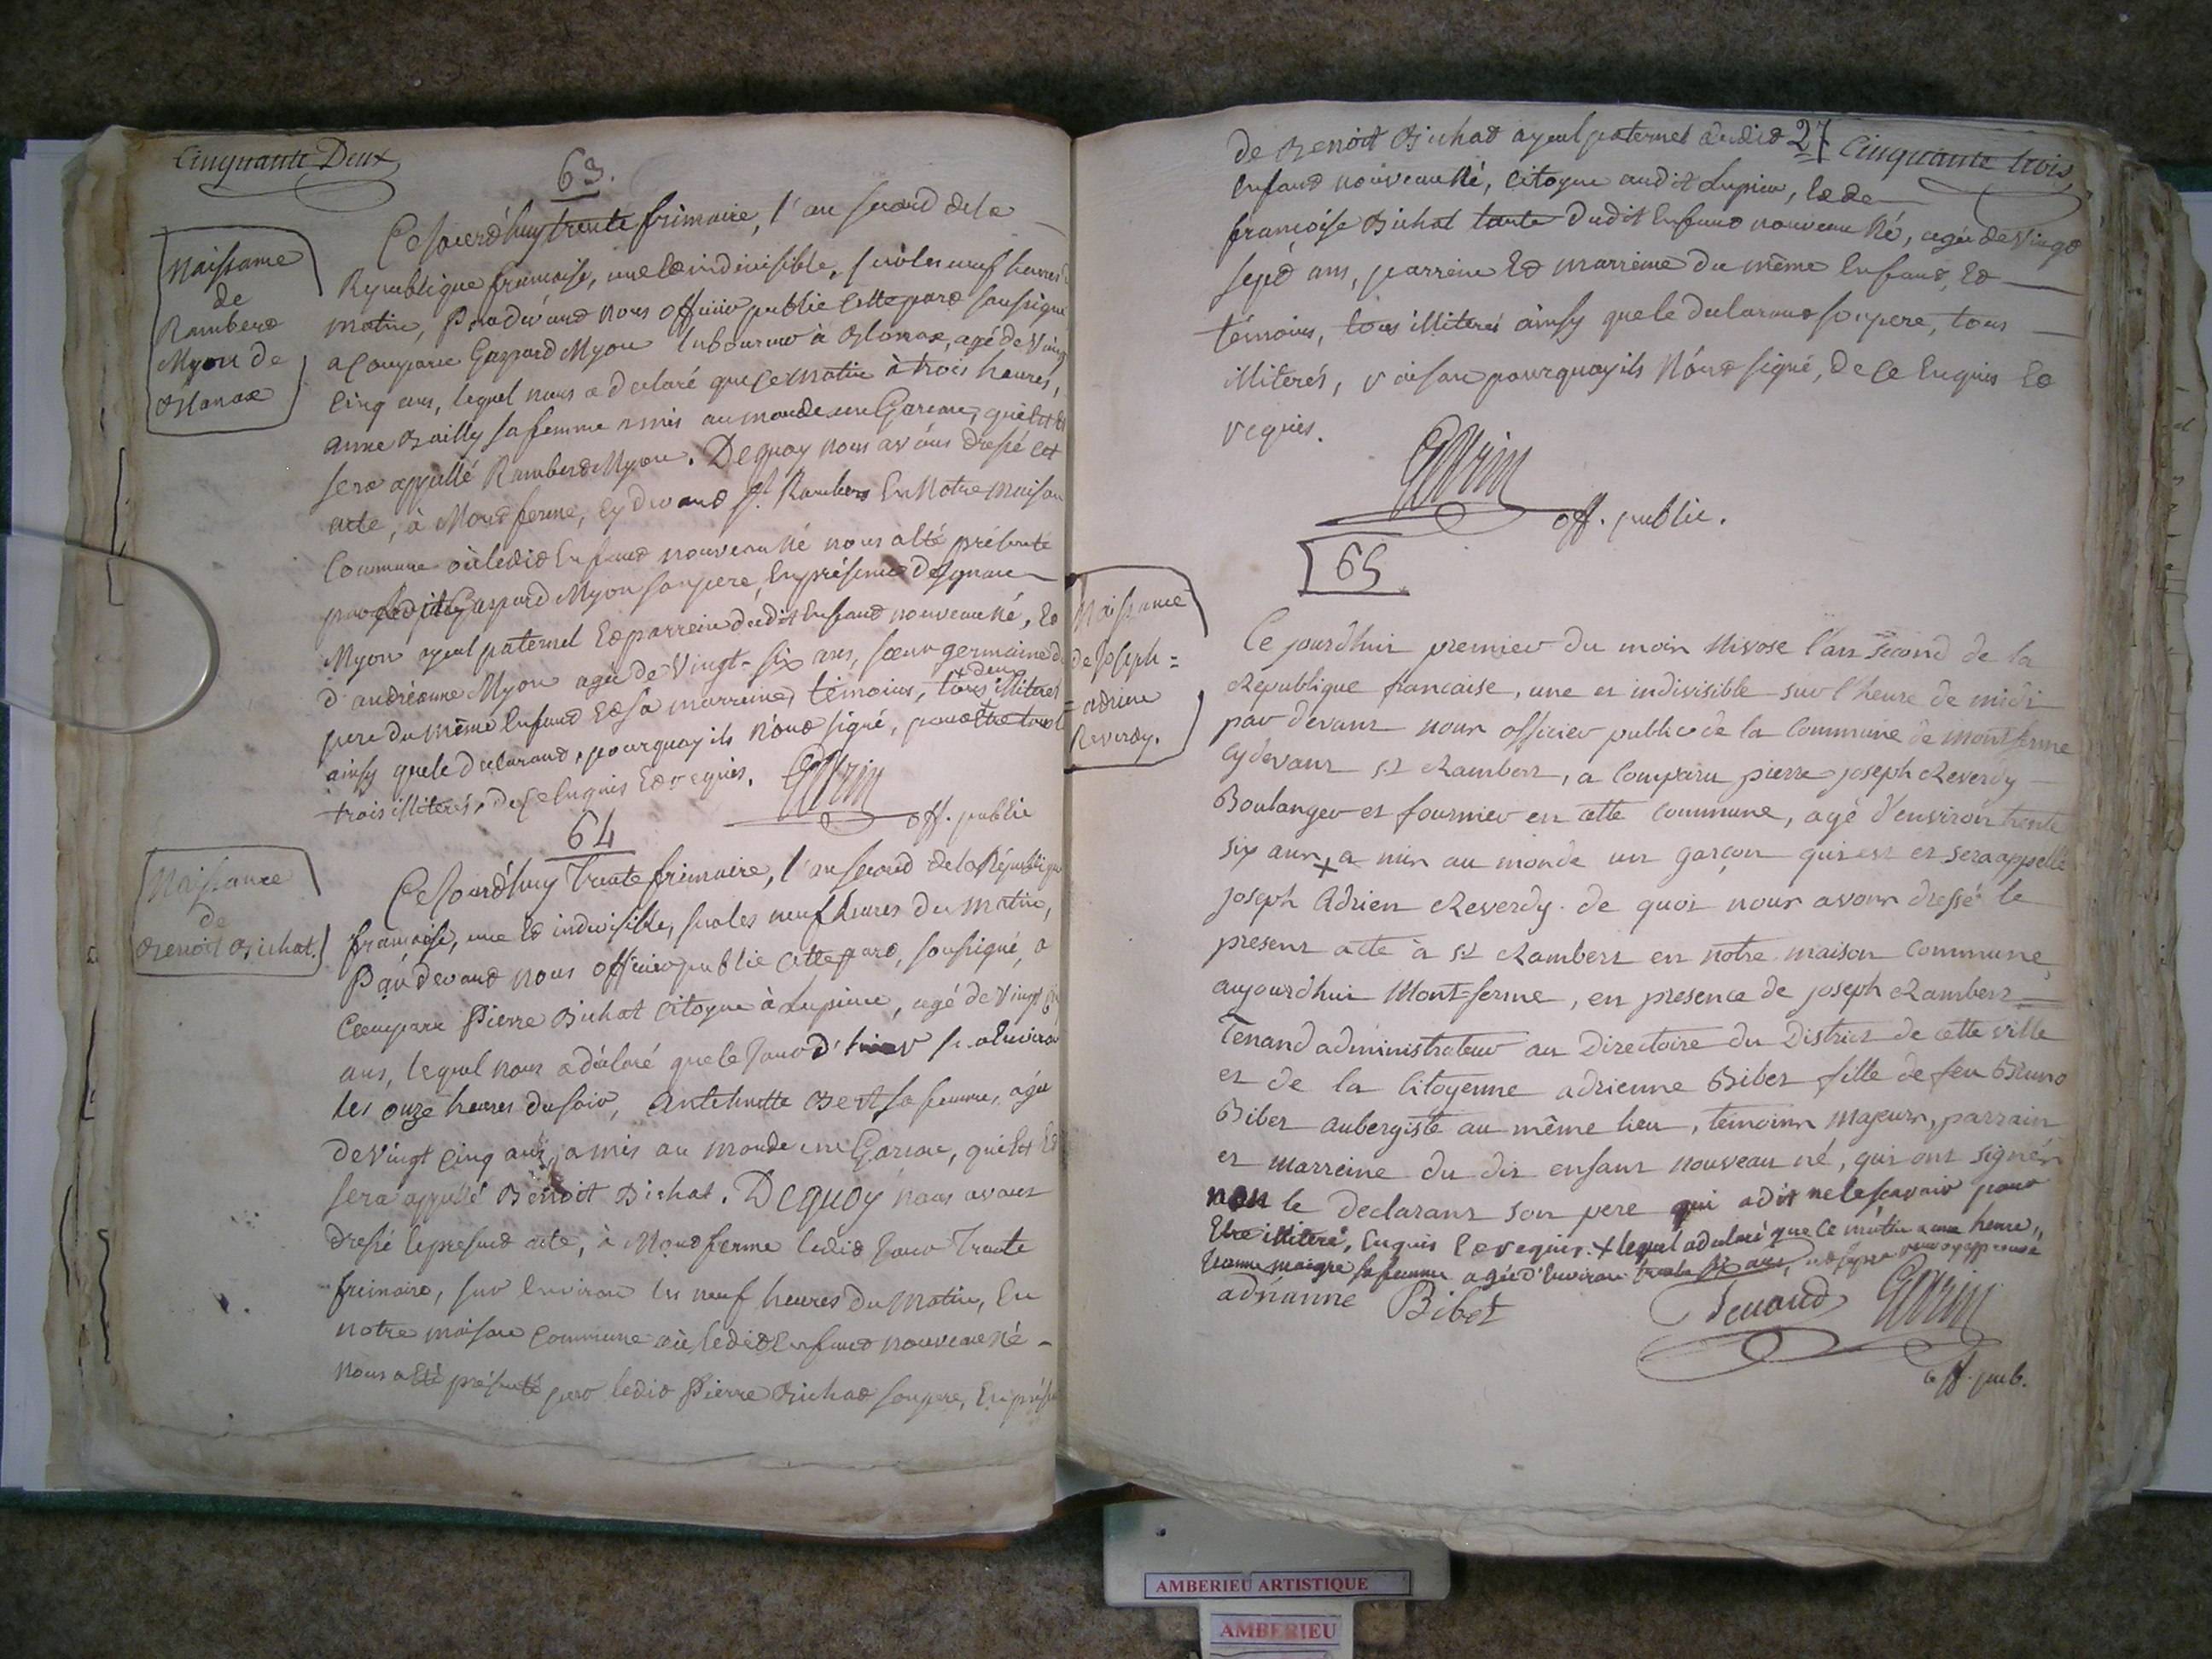 Cinquante Deux
63.
Naissance
de
Rambert
Myon de
Blanaz
Ce Jourd'huy trente frimaire, l'an second de la
Republique francaise, une et indivisible, sur les neuf heures
matin, Pardevant nous officier public cette part soussigné
a comparu Gaspard Myon laboureur à Blanaz, agé de Vingt
cinq ans, lequel nous a declaré que ce matin à trois heures,
anne Bailly sa femme a mis au monde un Garcon, qui est et
sera appellé Rambert Myon. De quoy nous avons dressé cet
acte, à Montferme, cydevant St. Rambert En Notre maison
Commune où ledit Enfant nouveau né nous a Eté présenté
par ledit Gaspard Myon son pere, En présence de
Myon ayeul paternel Et parrein dudit Enfant nouveau né, Et
d'andréanne Myon agée de Vingt-six ans, sœur germaine du
pere du même Enfant Et sa marreine, témoins, tous illiterés
ainsy que le declarant, pourquoy ils n'ont signé, pour Etre tous
trois illiterés, de ce Enquis Et requis.
off. public
64
Naissance
de
Benoit Bichat.
Ce Jourd'huy trente frimaire, l'an second de la République
francaise, une Et indivisible, sur les neuf heures du matin,
Par devant nous officier public cette part, soussigné, a
Comparu Pierre Bichat Citoyen à Lupieu, agé de Vingt
ans, lequel nous a déclaré que le Jour d'hier sur Environ
les onze heures du soir, Anthelmette Bert sa femme, agée
de Vingt cinq ans, a mis au monde un Garcon, qui Est Et
sera appellé Benoit Bichat. De quoy nous avons
dressé le present acte, à Montferme ledit Jour Trente
frimaire, sur Environ les neuf heures du Matin, En
notre maison Commune où ledit Enfant nouveau né
nous a Eté présenté par ledit Pierre Bichat son pere, En présence
27 Cinquante trois
de Benoit Bichat ayeul paternel dudit
Enfant nouveau Né, Citoyen audit Lupieu, Et de
françoise Bichat tante dudit Enfant nouveau Né, agée de Vingt
sept ans, parrein Et marreine du même Enfant, Et
témoins, tous illiterés ainsy que le declarant son pere, tous
illiterés, raison pourquoy ils N'ont signé, de ce Enquis Et
requis.
off. public.
65
Naissance
de Joseph =
= adrien
Reverdy.
Ce jourd'hui premier du mois Nivose l'an second de la
Republique francaise, une et indivisible sur l'heure de midi
par devant nous officier public de la Commune de montferme
cydevant St Rambert, a Comparu pierre joseph Reverdy
Boulanger et fournier en cette Commune, agé d'environ trente
six ans + a mis au monde un garçon qui est et sera appellé
joseph Adrien Reverdy. de quoi nous avons dressé le
present acte à St Rambert en notre maison Commune,
aujourd'hui Mont-ferme, en presence de joseph Rambert
Tenand administrateur au Directoire du District de cette ville
et de la Citoyenne adrienne Bibet fille de feu Bruno
Bibet aubergiste au même lieu, temoins majeurs, parrain
et marreine du dit enfant nouveau né, qui ont signés
non le declarant son pere qui a dit ne le scavoir pour
Etre illiteré, Enquis Et requis. + lequel a declaré que ce matin a une heure,
Jeanne maigre sa femme agée d'Environ trente six ans,
adrianne Bibet
Tenand
off. pub.
AMBERIEU ARTISTIQUE
AMBERIEU